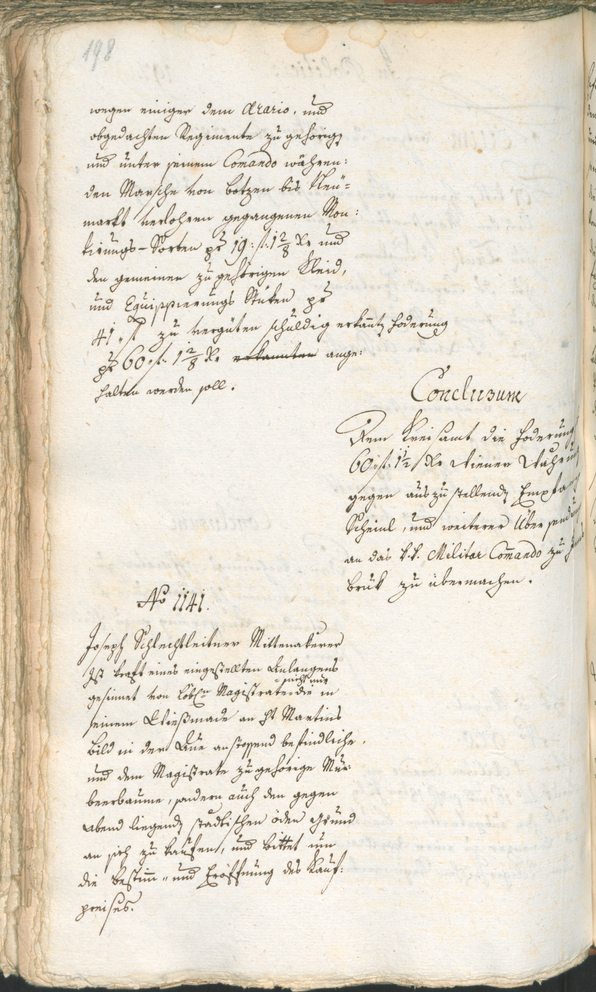 198
wegen einiger dem Aerario, und
obgedachten Regimente zugehörig,
und unter seinem Comando währen:
den Marsche von Botzen bis Neu=
markt verlohren gegangenen Mon:
tirungs-Sorten pr 19 f. 1 2/8 Xr und
den gemeinen zugehörigen Kleid,
und Equippierungs Stuken pr
41 f zu vergüten schuldig erkante Foderung
pr 60 f. 1 2/8 Xr erkannten ange:
halten werden soll.
Conclusum
Dem Kreisamt die Foderung
60 f. 1 2/8 Xr Wiener Währung
gegen auszustellende Empfang
Schein, und weiterer Übersendung
an das k.k. Militar Comando zu
bruk zu übermachen.
No 1141.
Joseph Schlechtleitner Mittenakerer
Ist kraft eines eingestellten Anlangens
gesinnet von löbl. Magistrate nicht nur die in
seinem Wiesmade an St Martins
bild in der Aue anstossend befindliche,
und dem Magistrate zugehörige Mur
beerbaume, sondern auch den gegen
Abend liegend städtischen öden Grund
an sich zu kaufen, und bittet um
die Bestim- und Eröffnung des Kauf:
preises.